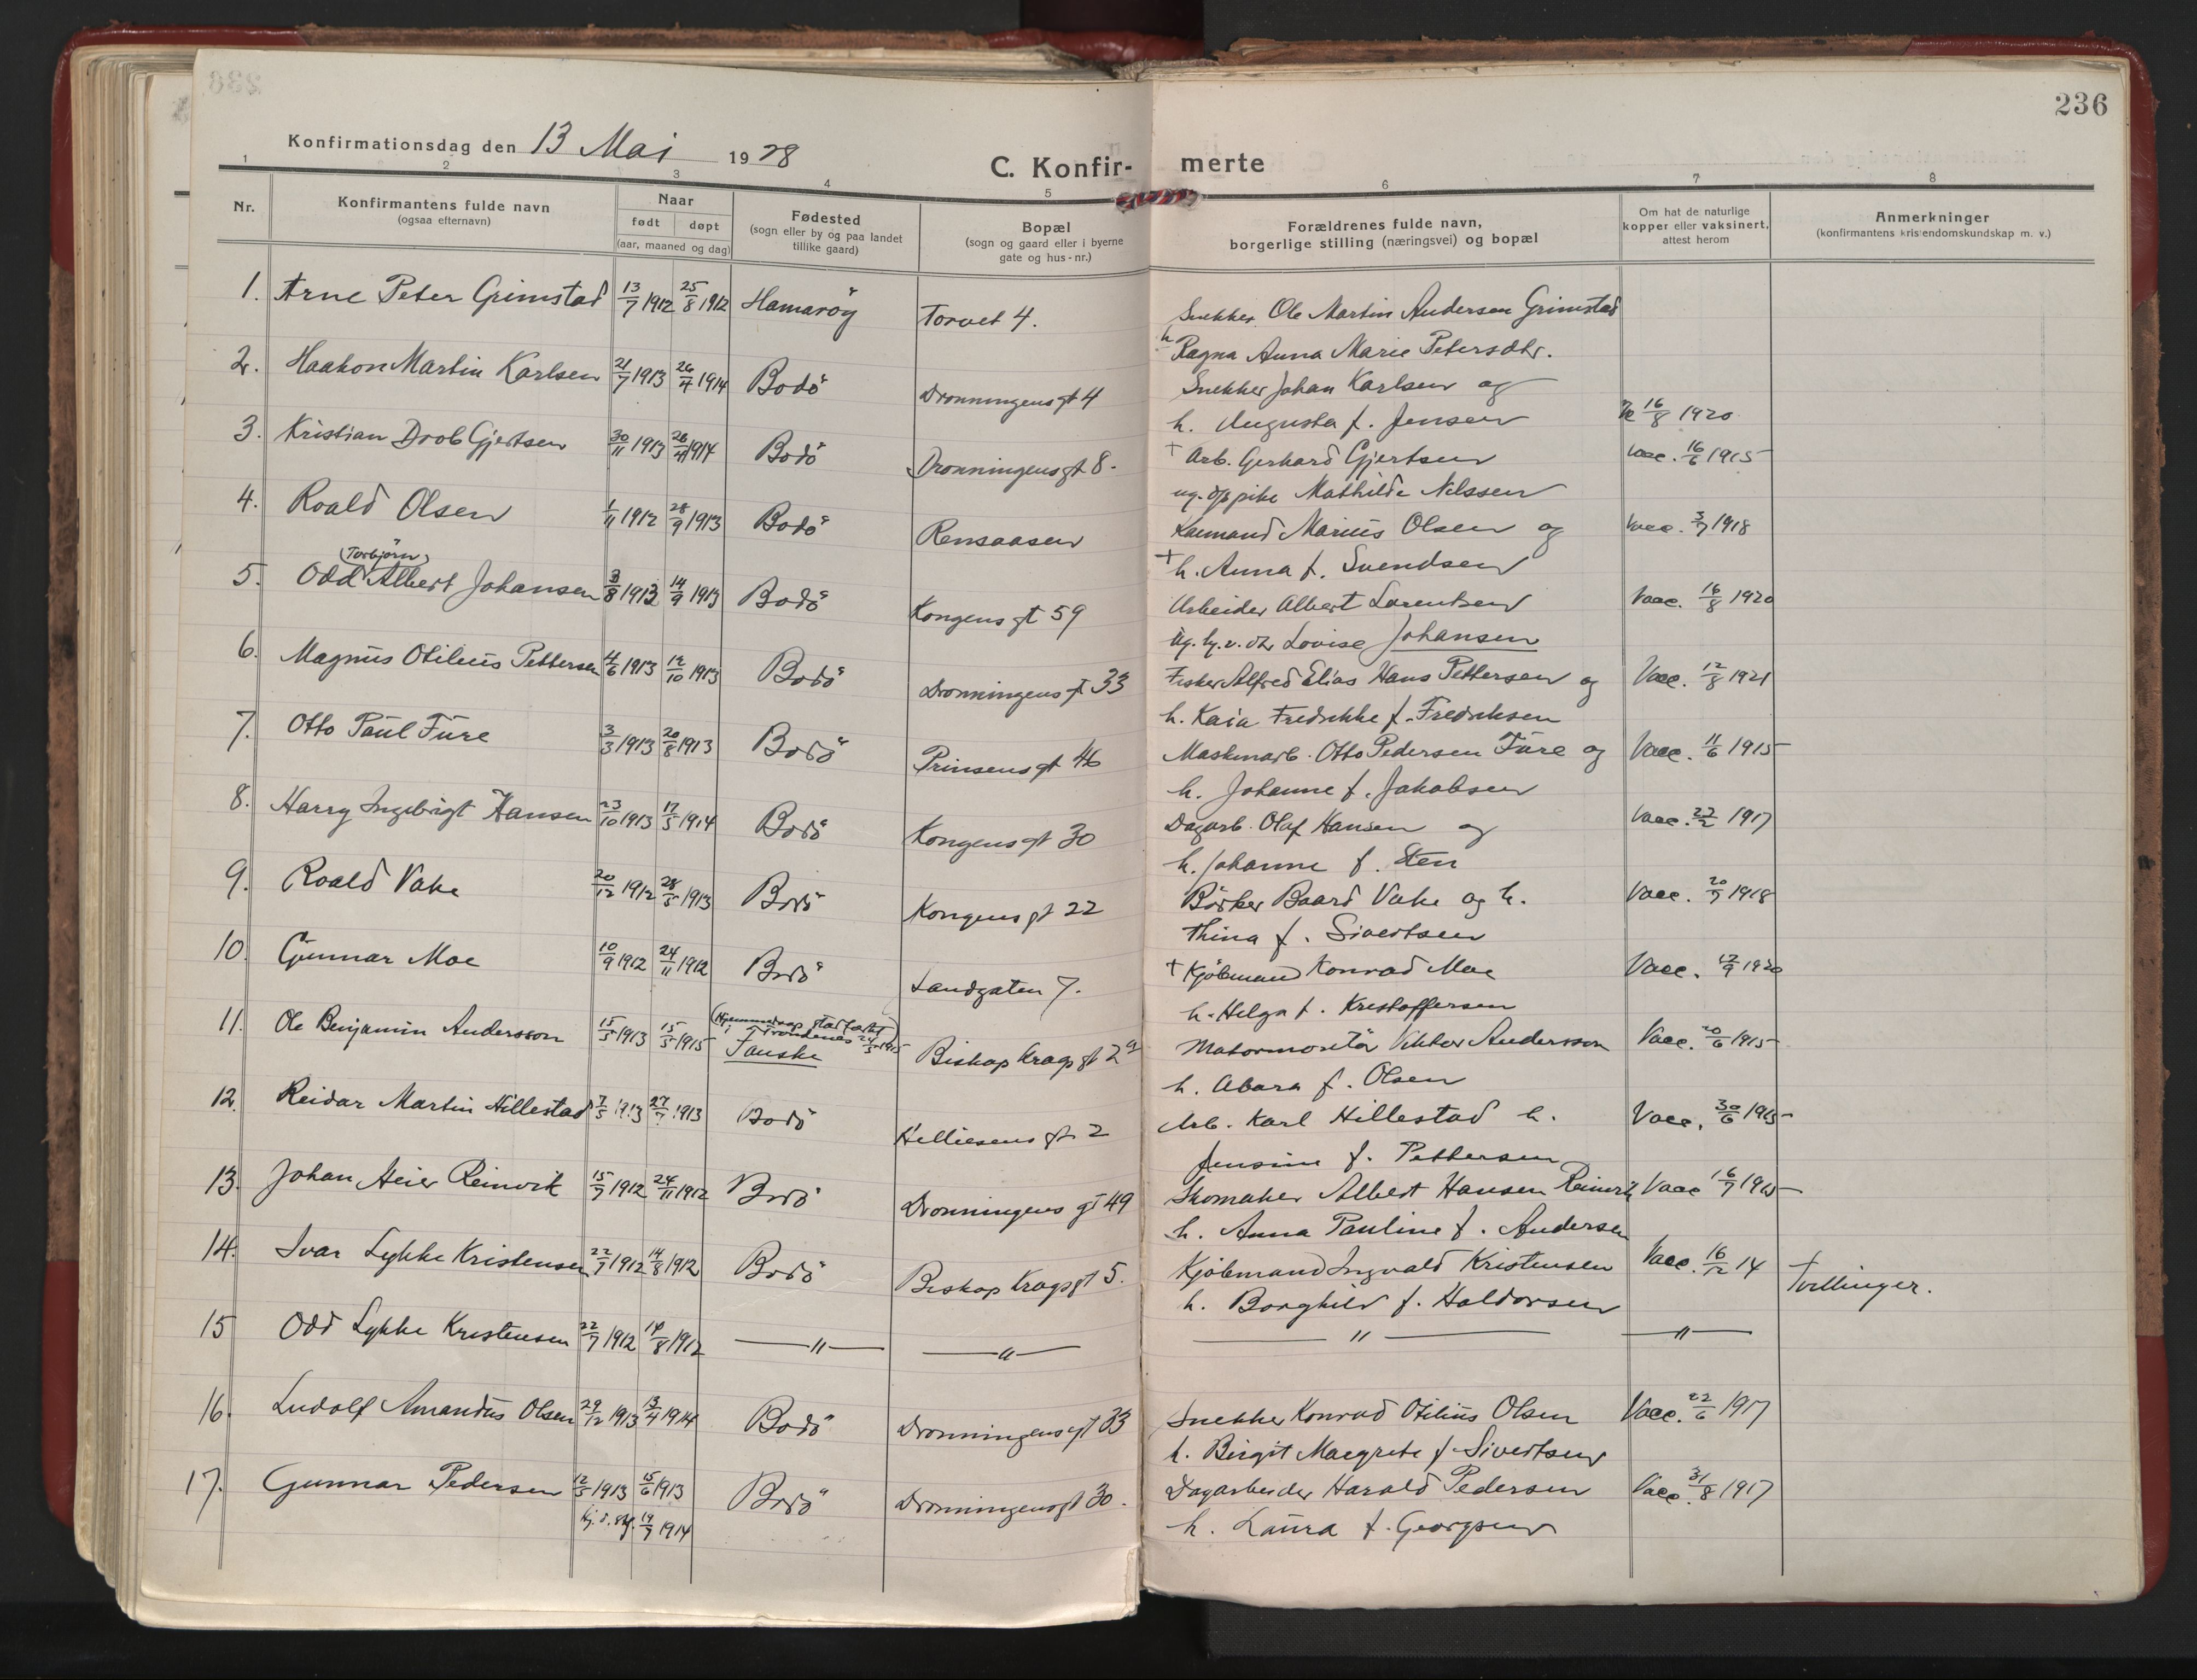 236
Konfirmationsdag den 13 Mai 1928
C. Konfir- merte
1 2 3 4 5 6 7 8
Nr.
Konfirmantens fulde navn
(ogsaa efternavn)
Naar
født døpt
(aar, maaned og dag)
Fødested
(sogn eller by og paa landet
tillike gaard)
Bopæl
(sogn og gaard eller i byerne
gate og hus-nr.)
Forældrenes fulde navn,
borgerlige stilling (næringsvei) og bopæl
Om hat de naturlige
kopper eller vaksinert,
attest herom
Anmerkninger
(konfirmantens kristendomskundskap m. v.)
1. Arne Peter Grimstad 13/7 1912 25/8 1912 Hamarøy Torvet 4. Snekker Ole Martin Andersen Grimstad
h Ragna Anna Marie Petersdtr.
2. Haakon Martin Karlsen 21/7 1913 26/4 1914 Bodö Dronningensgt 4 Snekker Johan Karlsen og
h. Augusta f. Jensen 16/8 1920
3. Kristian Drob Gjertsen 30/11 1913 26/4 1914 Bodö Dronningensgt 8. + Arb. Gerhard Gjertsen Vacc. 16/6 1915
ug. pike Mathilde Nilssen
4. Roald Olsen 1/11 1912 28/9 1913 Bodö Rensaasen Kaimand Marius Olsen og Vacc. 3/7 1918
+ h. Anna f. Svendsen
5. Odd (Torbjørn) Albert Johansen 3/8 1913 14/9 1913 Bodö Kongensgt 59 Arbeider Albert Lorentsen Vacc. 16/8 1920
ug. Lovise Johansen
6. Magnus Otilius Pettersen 4/6 1913 12/10 1913 Bodö Dronningensgt 33 Fisker Alfred Elias Hans Pettersen og Vacc. 12/8 1921
h. Kaia Fredrikke f. Fredriksen
7. Otto Paul Fure 3/3 1913 20/8 1913 Bodö Prinsensgt 46 Maskinarb. Otto Pedersen Fure og Vacc. 11/6 1915
h. Johanne f. Jakobsen
8. Harry Ingebrigt Hansen 23/10 1913 17/5 1914 Bodö Kongensgt 30 Dagarb. Olaf Hansen og Vacc. 22/2 1917
h. Johanne f. Sten
9. Roald Vake 20/12 1912 28/5 1913 Bodö Kongensgt 22 Bødker Baard Vake og h. Vacc. 20/7 1918
Thina f. Sivertsen
10. Gunnar Moe 10/9 1912 24/11 1912 Bodö Sandgaten 7. + Kjøbmand Konrad Moe Vacc. 17/9 1920
h. Helga f. Kristoffersen
11. Ole Benjamin Andersson 15/5 1913 15/5 1915 (Hjemmedaap stadfæstet
i Trondenes 24/5 1915)
Fauske Biskop Kragsgt 2a Motormontør Viktor Andersson Vacc. 20/6 1915
h. Abara f. Olsen
12. Reidar Martin Hillestad 7/5 1913 27/7 1913 Bodö Helliesensgt. 2 Arb. Karl Hillestad h. Vacc. 30/6 1915
Jensine f. Pettersen
13. Johan Meier Reinvik 15/7 1912 24/11 1912 Bodö Dronningensgt 49 Skomaker Albert Hansen Reinvik Vacc 16/7 1915
h. Anna Pauline f. Andersen
14. Ivar Lykke Kristensen 22/7 1912 14/8 1912 Bodö Biskop Kragsgt 5. Kjøbmand Ingvald Kristensen Vacc. 16/12 14 Tvillinger.
h. Borghild f. Haldorsen
15 Odd Lykke Kristensen 22/7 1912 14/8 1912 — " — — " — — " — — " —
16. Ludolf Amandus Olsen 29/12 1913 13/4 1914 Bodö Dronningensgt 33 Snekker Konrad Otilius Olsen Vacc. 22/6 1917
h. Birgit Margrete f. Sivertsen
17. Gunnar Pedersen 12/5 1913 15/6 1913 Bodö Dronningensgt 30. Dagarbeider Harald Pedersen Vacc. 31/8 1917
Hj. d. 19/7 1914 h. Laura f. Georgsen